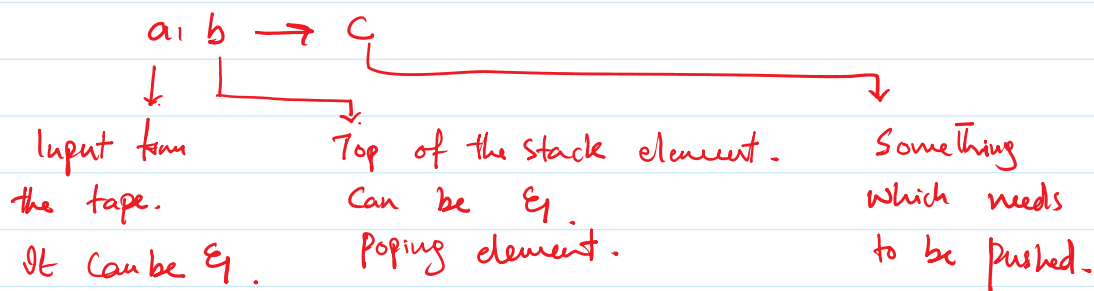 a, b → C
Input from
the tape.
It can be ε.
Top of the stack element.
Can be ε.
Poping element.
Something
which needs
to be pushed.